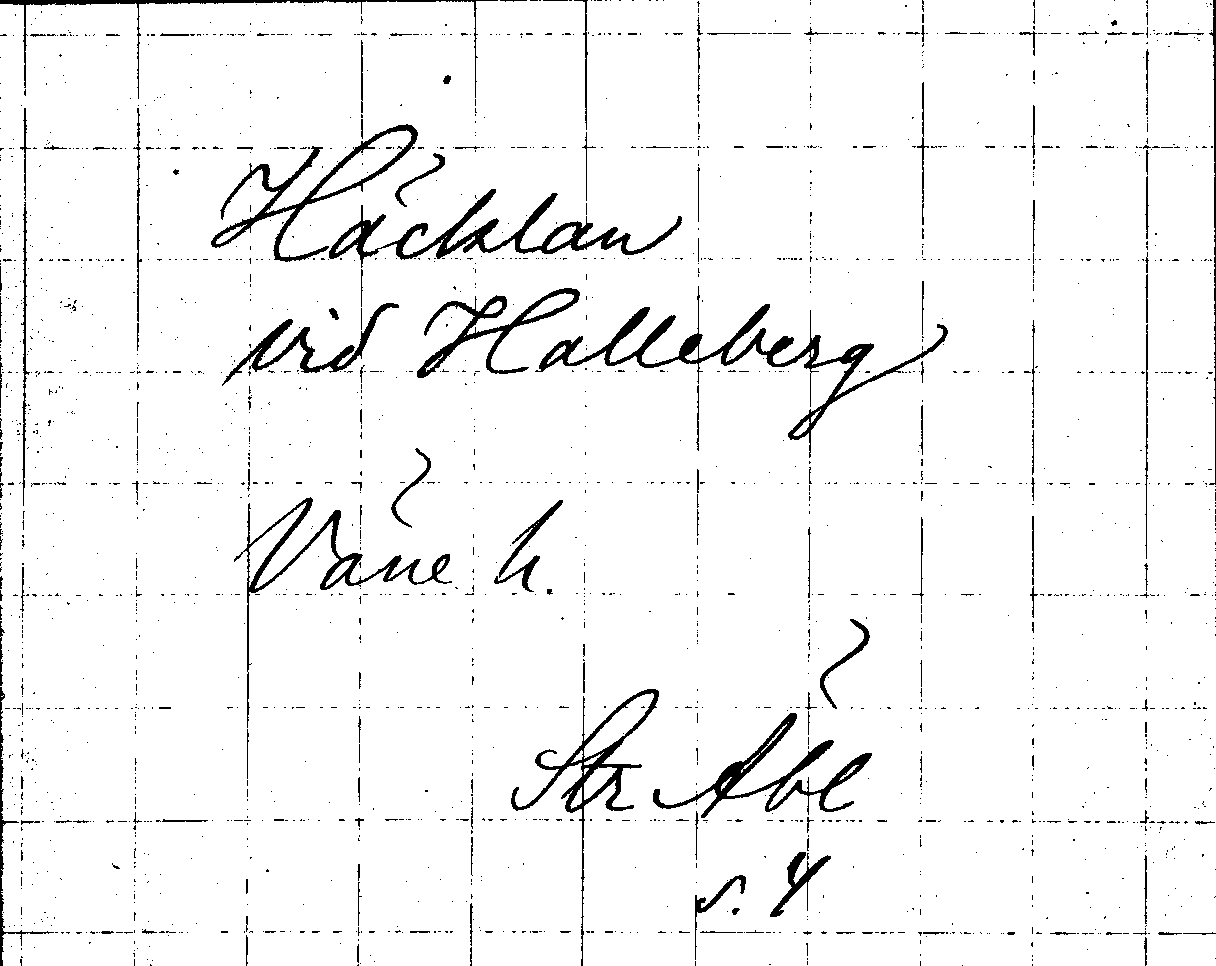 Häcklan
vid Halleberg
Väne h.
Str Äbl
s. 4